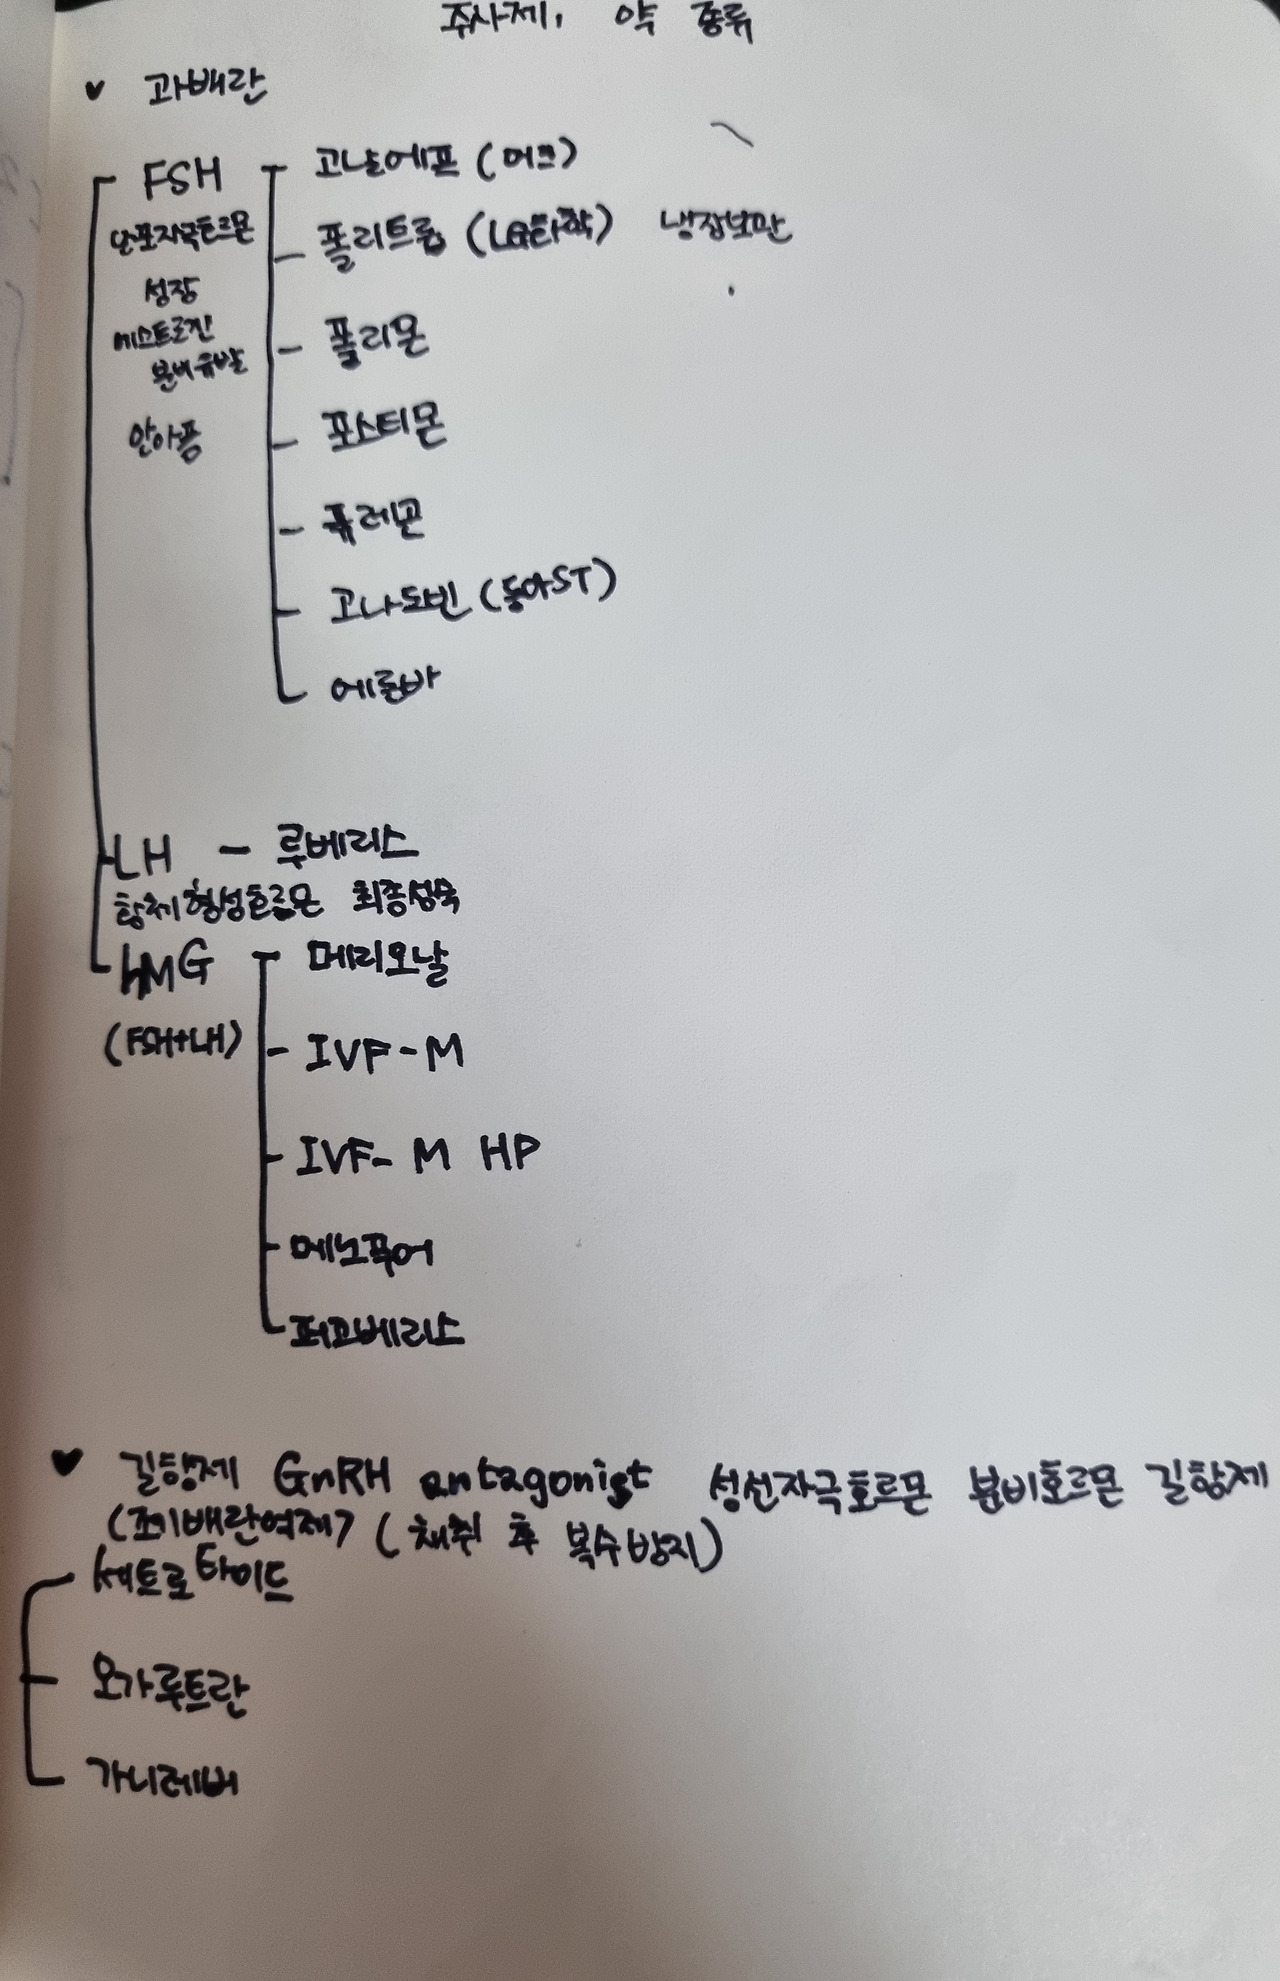 주사제, 약 종류
♥ 과배란
FSH
난포자극호르몬
성장
에스트로겐
분비유발
안아픔
고날에프 (머크)
폴리트롭 (LG화학) 냉장보관
폴리몬
포스티몬
퓨레곤
고나도빈 (동아ST)
에론바
LH - 루베리스
황체형성호르몬 최종성숙
hMG
(FSH+LH)
메리오날
IVF-M
IVF-M HP
메노푸어
퍼고베리스
♥ 길항제 GnRH antagonist 성선자극호르몬 분비호르몬 길항제
(조기배란억제) (채취 후 복수방지)
세트로타이드
오가루트란
가니레버